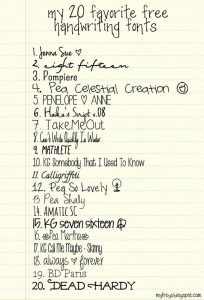 my 20 favorite free
handwriting fonts
1. Jenna Sue ♡
2. eight fifteen
3. Pompiere
4. Pea Celestial Creation
5. PENELOPE ♡ ANNE
6. Hanka's Script v.08
7. Take Me Out
8. Can't Wait Quickly To Wake
9. MATHLETE
10. KG Somebody That I Used To Know
11. Calligraffiti
12. Peg So Lovely
13. Pea Shaly
14. AMATIC SC
15. KG seven sixteen
16. Pea Martha
17. KG Call Me Maybe - Skinny
18. always ♡ forever
19. BD Paris
20. DEAD HARDY
myfroggy.blogspot.com